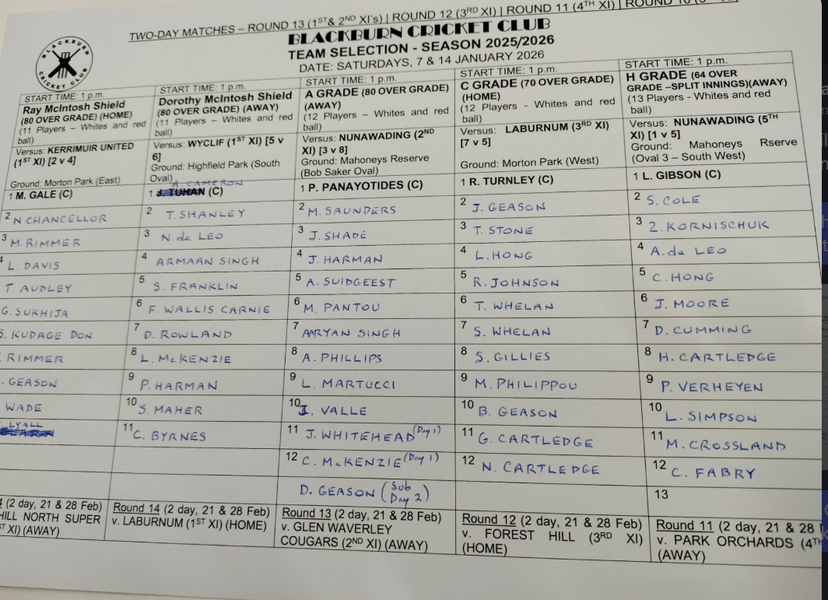 TWO-DAY MATCHES – ROUND 13 (1ST & 2ND XI's) | ROUND 12 (3RD XI) | ROUND 11 (4TH XI) |
BLACKBURN CRICKET CLUB
BLACKBURN
CRICKET CLUB
TEAM SELECTION - SEASON 2025/2026
DATE: SATURDAYS, 7 & 14 JANUARY 2026
START TIME: 1 p.m.
Ray McIntosh Shield
(80 OVER GRADE) (HOME)
(11 Players – Whites and red
ball)
Versus: KERRIMUIR UNITED
(1ST XI) [2 v 4]
Ground: Morton Park (East)
1 M. GALE (C)
2 N CHANCELLOR
3 M. RIMMER
4 L. DAVIS
T. AUDLEY
G. SUKHIJA
S. KUDAGE DON
RIMMER
. GEASON
WADE
LYALL
(2 day, 21 & 28 Feb)
HILL NORTH SUPER
XI) (AWAY)
START TIME: 1 p.m.
Dorothy McIntosh Shield
(80 OVER GRADE) (AWAY)
(11 Players – Whites and red
ball)
Versus: WYCLIF (1ST XI) [5 v
6]
Ground: Highfield Park (South
Oval)
A. CAMERON
1 J. TUHAN (C)
2 T. SHANLEY
3 N. de LEO
4 ARMAAN SINGH
5 S. FRANKLIN
6 F. WALLIS CARNIE
7 D. ROWLAND
8 L. McKENZIE
9 P. HARMAN
10 S. MAHER
11 C. BYRNES
Round 14 (2 day, 21 & 28 Feb)
v. LABURNUM (1ST XI) (HOME)
START TIME: 1 p.m.
A GRADE (80 OVER GRADE)
(AWAY)
(12 Players - Whites and red
ball)
Versus: NUNAWADING (2ND
XI) [3 v 8]
Ground: Mahoneys Reserve
(Bob Saker Oval)
1 P. PANAYOTIDES (C)
2 M. SAUNDERS
3 J. SHADE
4 J. HARMAN
5 A. SUIDGEEST
6 M. PANTOU
7 AARYAN SINGH
8 A. PHILLIPS
9 L. MARTUCCI
10 I. VALLE
11 J. WHITEHEAD (Day 1)
12 C. McKENZIE (Day 1)
D. GEASON (Sub
Day 2)
Round 13 (2 day, 21 & 28 Feb)
v. GLEN WAVERLEY
COUGARS (2ND XI) (AWAY)
START TIME: 1 p.m.
C GRADE (70 OVER GRADE)
(HOME)
(12 Players - Whites and red
ball)
Versus: LABURNUM (3RD XI)
[7 v 5]
Ground: Morton Park (West)
1 R. TURNLEY (C)
2 J. GEASON
3 T. STONE
4 L. HONG
5 R. JOHNSON
6 T. WHELAN
7 S. WHELAN
8 S. GILLIES
9 M. PHILIPPOU
10 B. GEASON
11 G. CARTLEDGE
12 N. CARTLEDGE
Round 12 (2 day, 21 & 28 Feb)
v. FOREST HILL (3RD XI)
(HOME)
START TIME: 1 p.m.
H GRADE (64 OVER
GRADE –SPLIT INNINGS)(AWAY)
(13 Players - Whites and red
ball)
Versus: NUNAWADING (5TH
XI) [1 v 5]
Ground: Mahoneys Rserve
(Oval 3 – South West)
1 L. GIBSON (C)
2 S. COLE
3 Z. KORNISCHUK
4 A. de LEO
5 C. HONG
6 J. MOORE
7 D. CUMMING
8 H. CARTLEDGE
9 P. VERHEYEN
10 L. SIMPSON
11 M. CROSSLAND
12 C. FABRY
13
Round 11 (2 day, 21 & 28
v. PARK ORCHARDS (4TH
(AWAY)